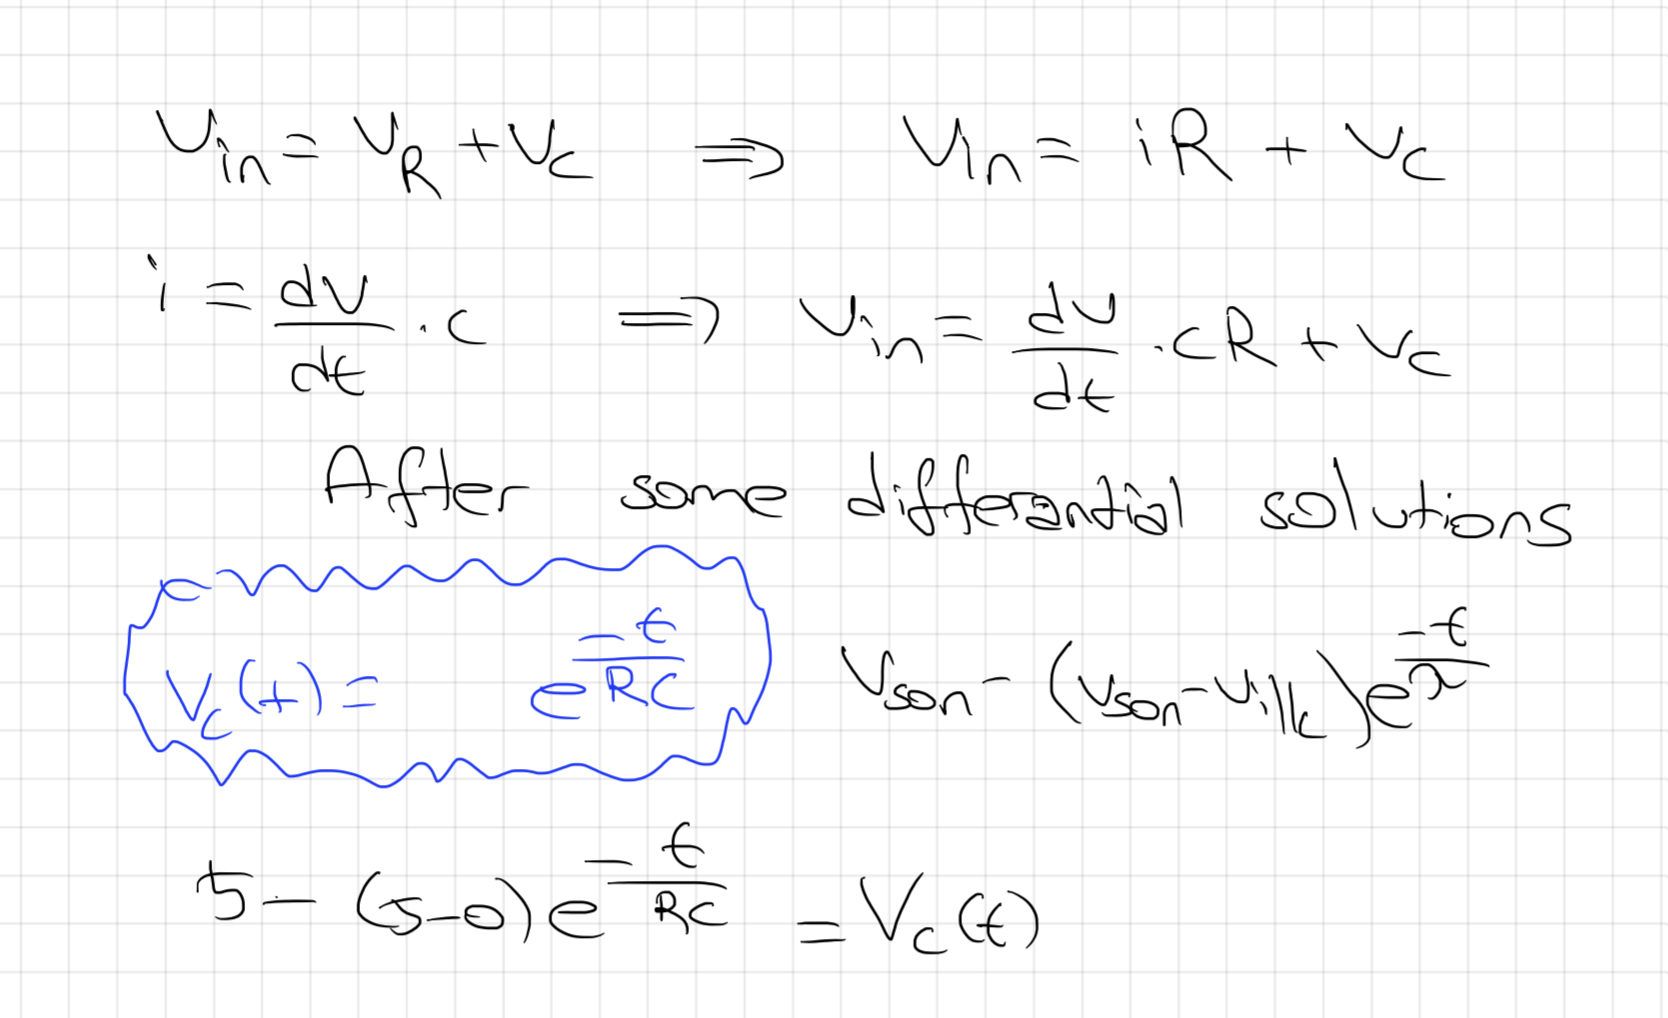 Vin = VR + Vc ⟹ Vin = iR + Vc
i = dV/dt . c ⟹ Vin = dV/dt . cR + Vc
After some differantial solutions
Vc(t) = e^(-t/RC) Vson - (Vson - Vilk)e^(-t/τ)
5 - (5-0)e^(-t/RC) = Vc(t)